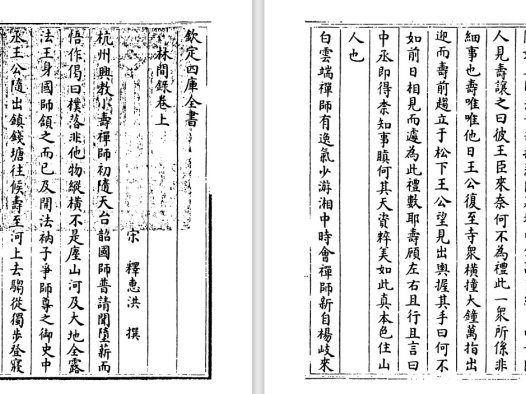 欽定四庫全書
林間錄卷上
宋 釋惠洪 撰
杭州興教小壽禪師初隨天台韶國師普請聞墮薪而
悟作偈曰樸落非他物縱橫不是塵山河及大地全露
法王身國師頷之而已及開法衲子爭師尊之御史中
丞王公隨出鎮錢塘往候壽至河上去騶從獨步登寢
人見壽讓之曰彼王臣來奈何不為禮此一衆所係非
細事也壽唯唯他日王公復至寺衆橫撞大鐘萬指出
迎而壽前趨立于松下王公望見出輿握其手曰何不
如前日相見而遽為此禮數耶壽顧左右且行且言曰
中丞即得柰知事瞋何其天資粹美如此真本色住山
人也
白雲端禪師有逸氣少游湘中時會禪師新自楊岐來